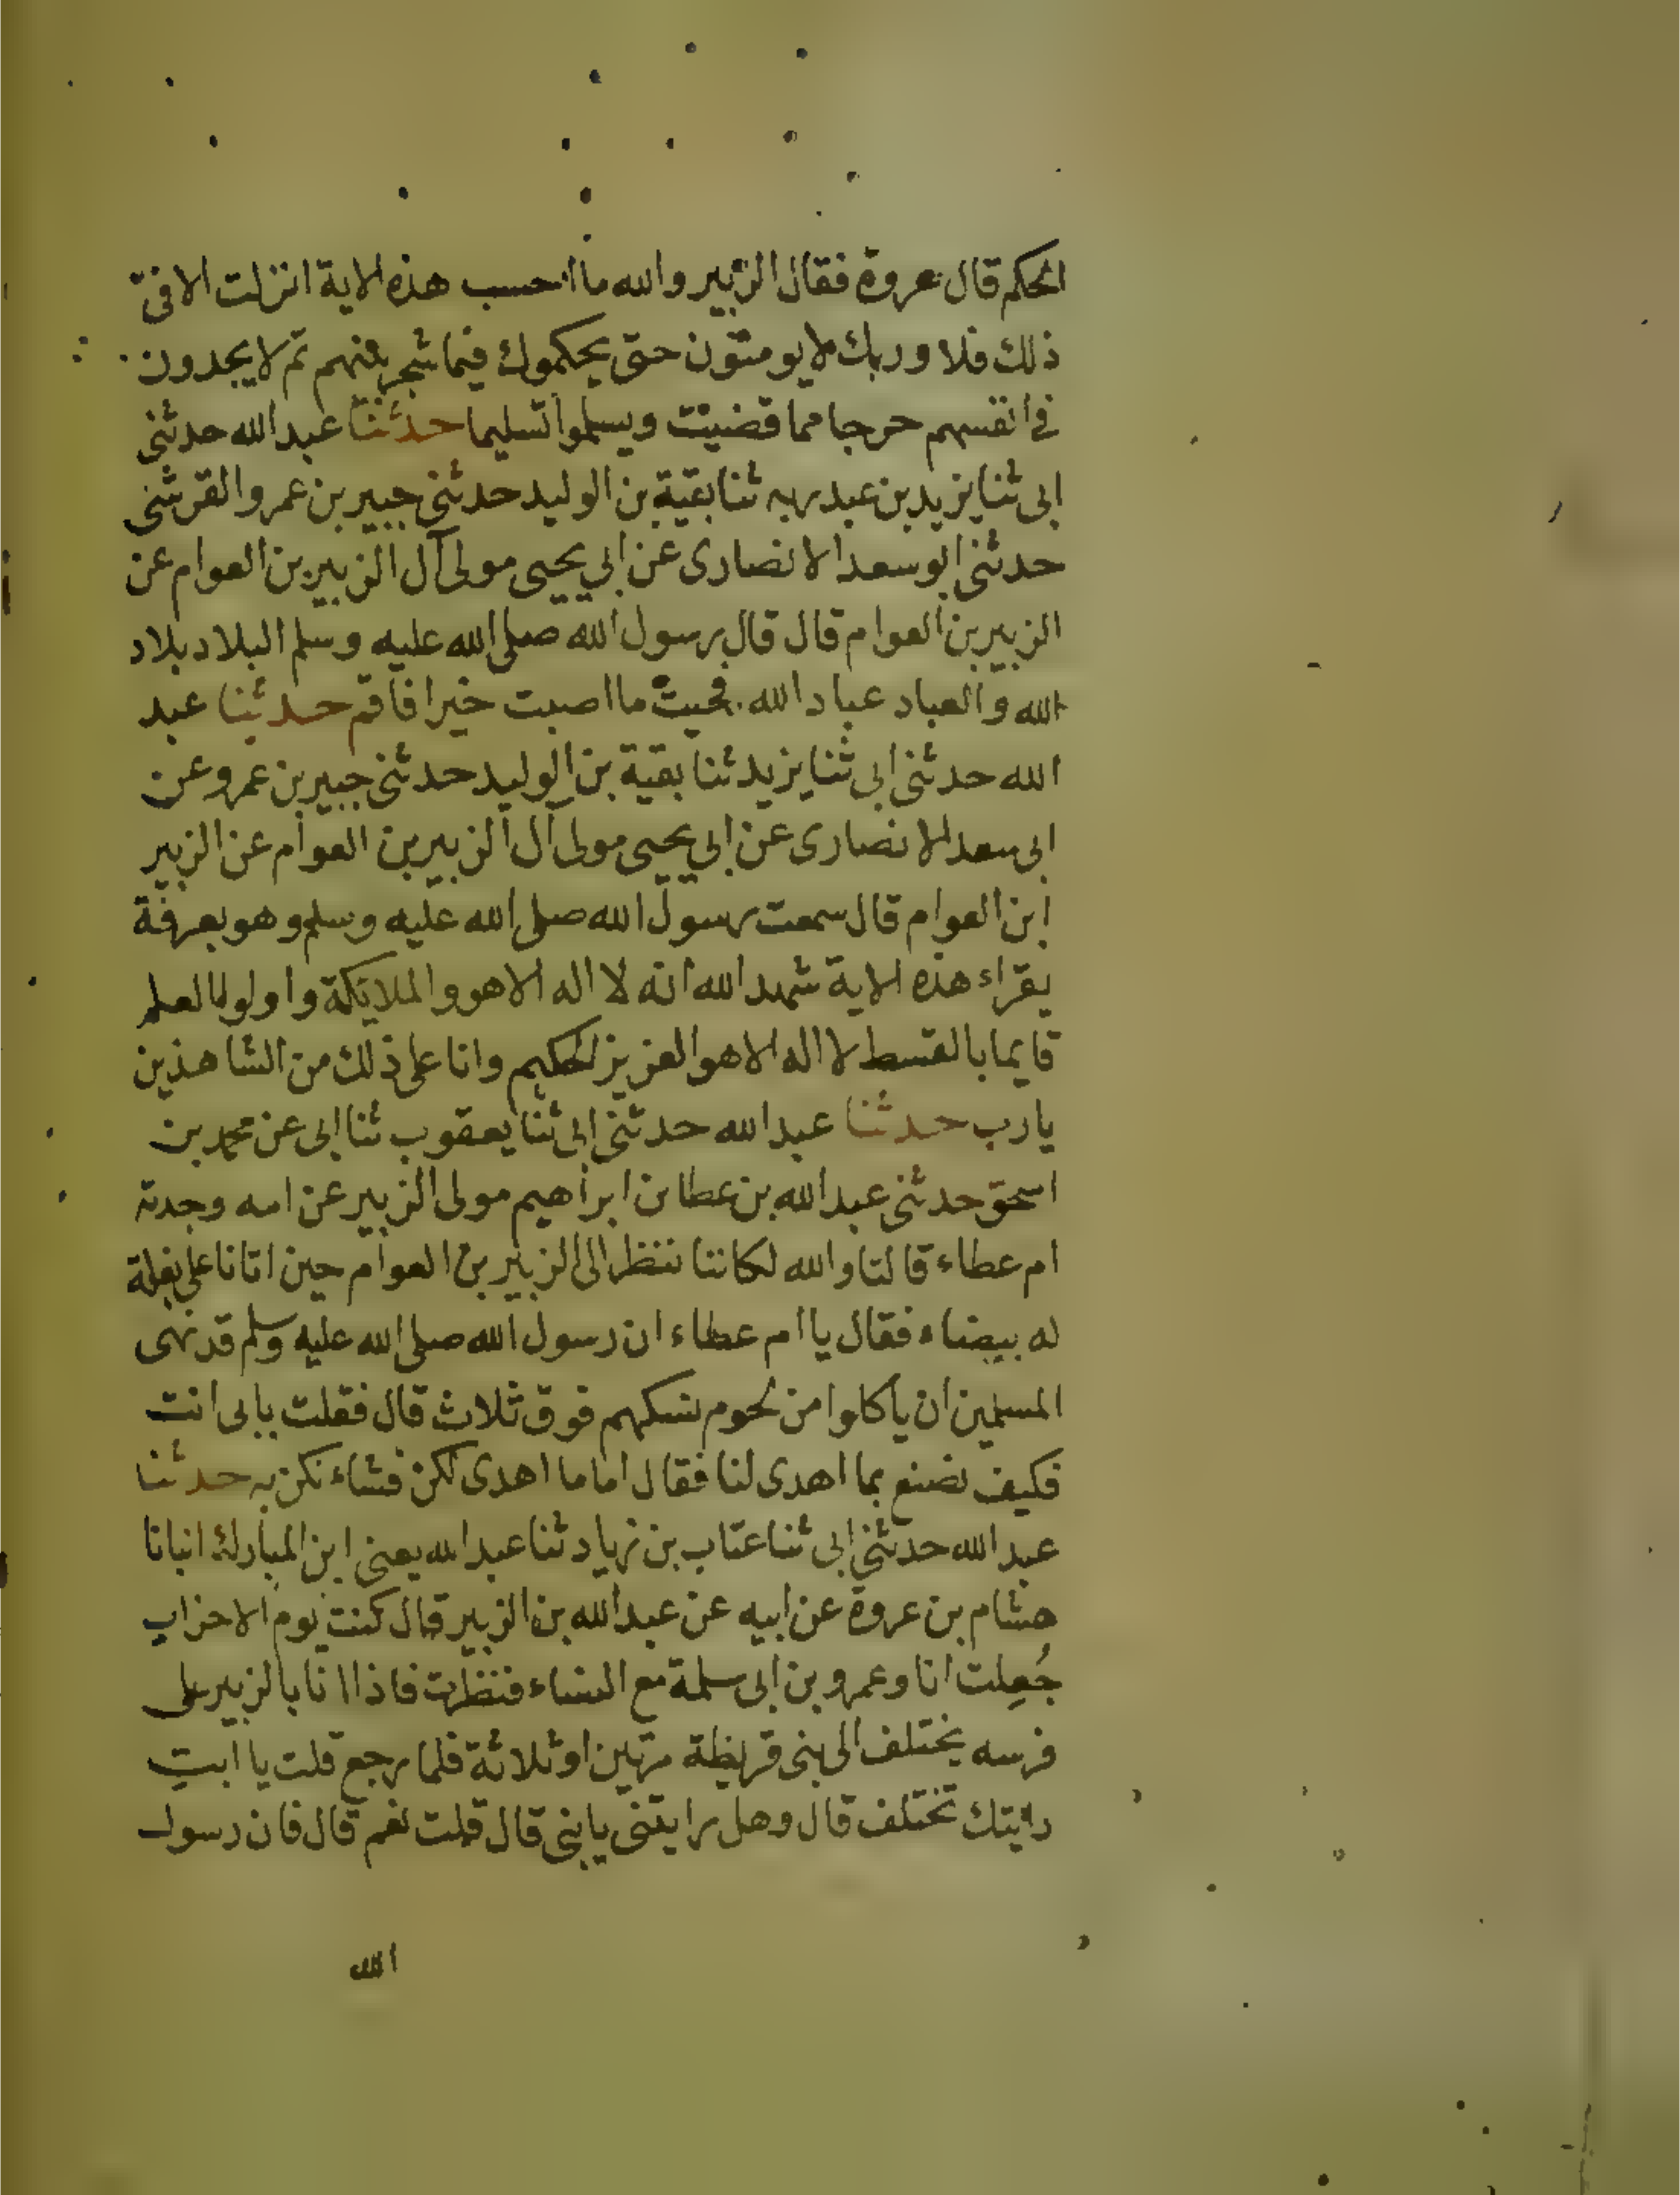 الحكم قال عروة فقال الزبير والله ما احسب هذه الاية انزلت الا في
ذلك فلا وربك لا يومنون حتى يحكموك فيما شجر بينهم ثم لا يجدون
في انفسهم حرجا مما قضيت ويسلموا تسليما حدثنا عبد الله حدثني
ابى ثنا يزيد بن عبد ربه ثنا بقية بن الوليد حدثني جبير بن عمرو القرشى
حدثني ابو سعد الانصارى عن ابي يحيى مولى آل الزبير بن العوام عن
الزبير بن العوام قال قال رسول الله صلى الله عليه وسلم البلاد بلاد
الله والعباد عباد الله فحيث ما اصبت خيرا فاقم حدثنا عبد
الله حدثني ابى ثنا يزيد ثنا بقية بن الوليد حدثني جبير بن عمرو عن
ابى سعد الانصارى عن ابي يحيى مولى آل الزبير بن العوام عن الزبير
ابن العوام قال سمعت رسول الله صلى الله عليه وسلم وهو بعرفة
يقراء هذه الاية شهد الله انه لا اله الا هو والملايكة واولوا العلم
قايما بالقسط لا اله الا هو العزيز الحكيم وانا على ذلك من الشاهدين
يارب حدثنا عبد الله حدثني ابى ثنا يعقوب ثنا ابى عن محمد بن
اسحق حدثني عبد الله بن عطا بن ابراهيم مولى الزبير عن امه وجدته
ام عطاء قالتا والله لكاننا ننظر الى الزبير بن العوام حين اتانا على بغلة
له بيضاء فقال يا ام عطاء ان رسول الله صلى الله عليه وسلم قد نهى
المسلمين ان ياكلوا من لحوم نسكهم فوق ثلاث قال فقلت بابى انت
فكيف نصنع بما اهدى لنا فقال اما ما اهدى لكن فشاءنكن به حدثنا
عبد الله حدثني ابى ثنا عتاب بن زياد ثنا عبد الله يعنى ابن المبارك انبانا
هشام بن عروة عن ابيه عن عبد الله بن الزبير قال كنت يوم الاحزاب
جُعِلت انا وعمرو بن ابى سلمة مع النساء فنظرت فاذا انا بالزبير على
فرسه يختلف الى بنى قريظة مرتين او ثلاثة فلما رجع قلت يا ابتِ
رايتك تختلف قال وهل رايتنى يا بنى قال قلت نعم قال فان رسول
الله